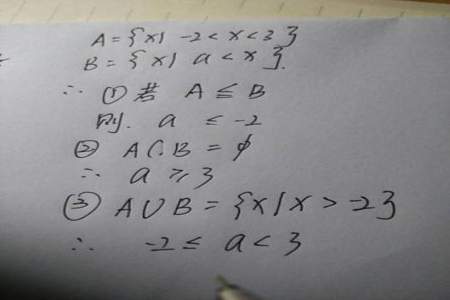 A={x| -2<x<3}
B={x| a<x}.
∴ ①若 A⊆B
则. a ≤-2
② A∩B=ϕ
∴ a≥3
③ A∪B={x|x>-2}
∴ -2≤a<3